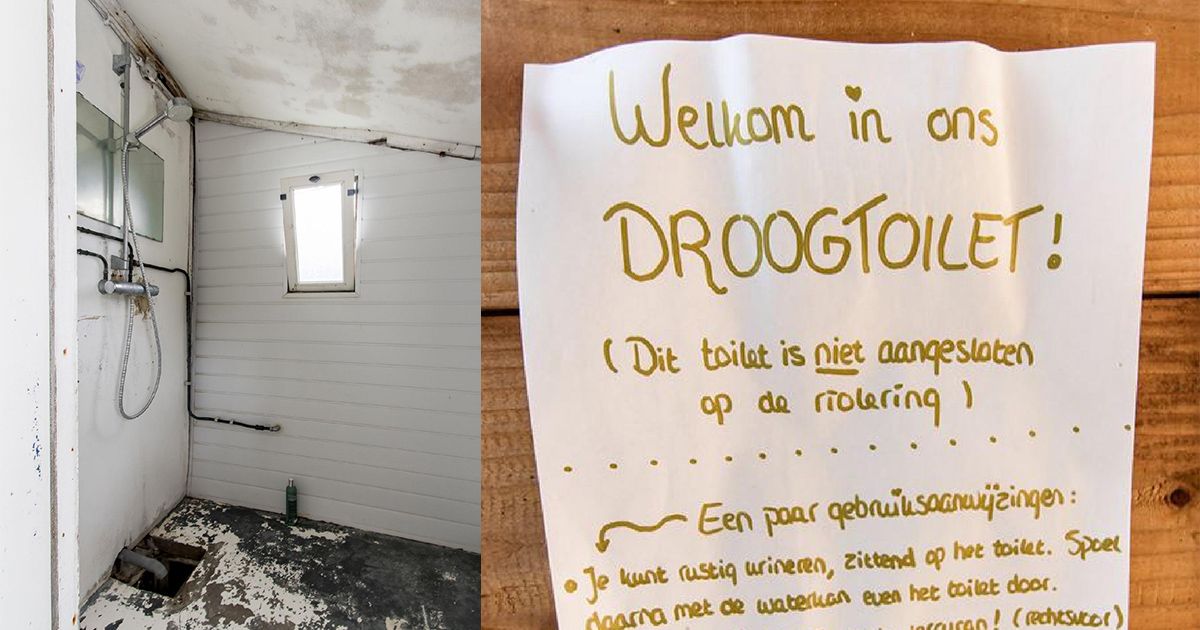 Welkom in ons
DROOGTOILET!
(Dit toilet is niet aangesloten
op de riolering)
Een paar gebruiksaanwijzingen:
• Je kunt rustig urineren, zittend op het toilet. Spoel
daarna met de waterkan even het toilet door.
(rechtsvoor)